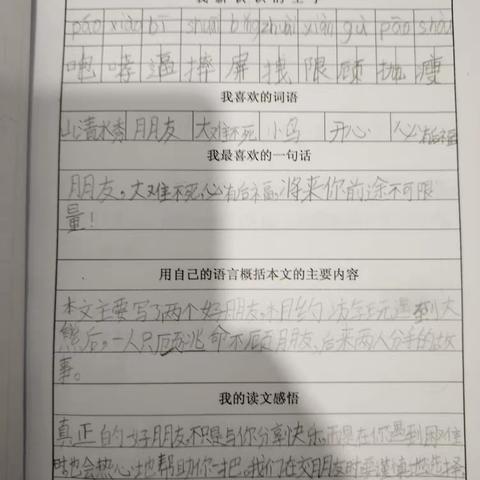 我新认识的生字
páo xiào bī shuāi bǐng zhuài xiàn gù pāo shòu
咆 哮 逼 摔 屏 拽 限 顾 抛 瘦
我喜欢的词语
山清水秀 朋友 大难不死 小鸟 开心 必有后福
我最喜欢的一句话
朋友,大难不死,必有后福,将来你前途不可限
量!
用自己的语言概括本文的主要内容
本文主要写了两个好朋友,相约访学玩遇到大
熊后,一人只顾逃命不顾朋友,后来两人分手的故
事。
我的读文感悟
真正的好朋友,不只是与你分享快乐,而是在你遇到困难
时也会热心地帮助你一把,我们在交朋友时要谨慎地选择